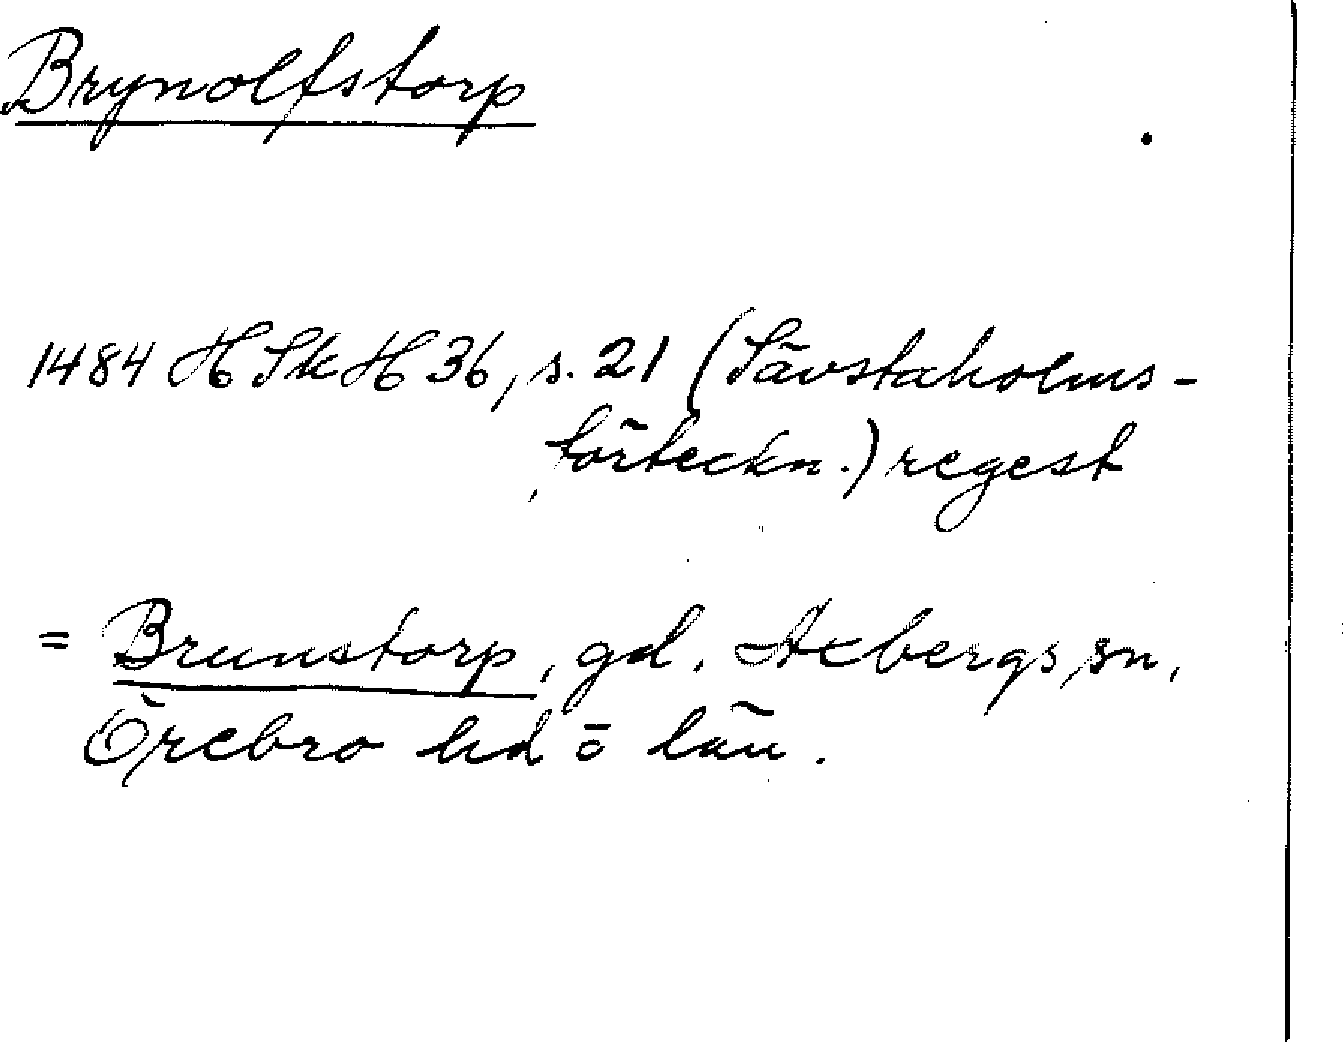 Brynolfstorp
1484 HSkH 36, s. 21 (Sävstaholms-
förteckn.) regest
= Brunstorp, gd, Axbergs sn,
Örebro hd o län.